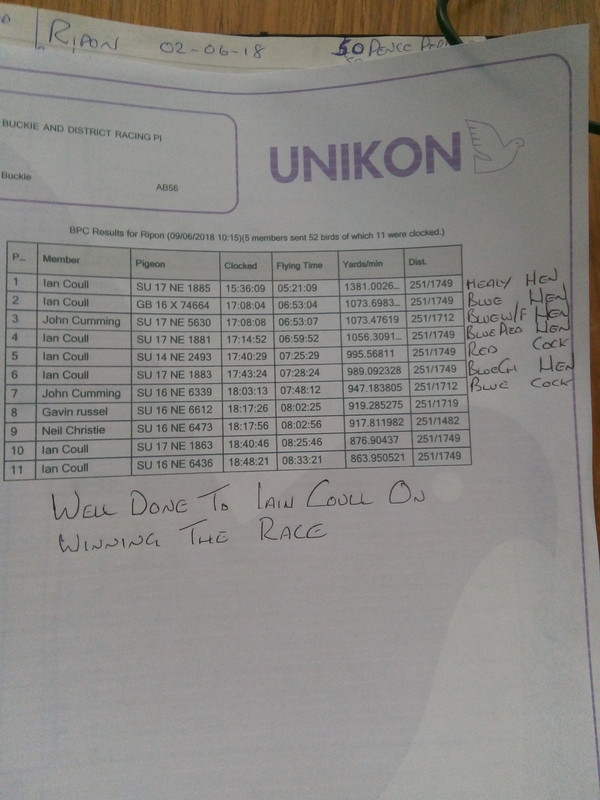 RIPON 02-06-18 50 PENCE
BUCKIE AND DISTRICT RACING PI
Buckie
AB56
UNIKON
BPC Results for Ripon (09/06/2018 10:15)(5 members sent 52 birds of which 11 were clocked.)
P... Member Pigeon Clocked Flying Time Yards/min Dist.
1 Ian Coull SU 17 NE 1885 15:36:09 05:21:09 1381.0026... 251/1749 MEALY HEN
2 Ian Coull GB 16 X 74664 17:08:04 06:53:04 1073.6983... 251/1749 BLUE HEN
3 John Cumming SU 17 NE 5630 17:08:08 06:53:07 1073.47619 251/1712 BLUE W/F HEN
4 Ian Coull SU 17 NE 1881 17:14:52 06:59:52 1056.3091... 251/1749 BLUE PIED HEN
5 Ian Coull SU 14 NE 2493 17:40:29 07:25:29 995.56811 251/1749 RED COCK
6 Ian Coull SU 17 NE 1883 17:43:24 07:28:24 989.092328 251/1749 BLUE CH HEN
7 John Cumming SU 16 NE 6339 18:03:13 07:48:12 947.183805 251/1712 BLUE COCK
8 Gavin russel SU 16 NE 6612 18:17:26 08:02:25 919.285275 251/1719
9 Neil Christie SU 16 NE 6473 18:17:56 08:02:56 917.811982 251/1482
10 Ian Coull SU 17 NE 1863 18:40:46 08:25:46 876.90437 251/1749
11 Ian Coull SU 16 NE 6436 18:48:21 08:33:21 863.950521 251/1749
WELL DONE TO IAIN COULL ON
WINNING THE RACE